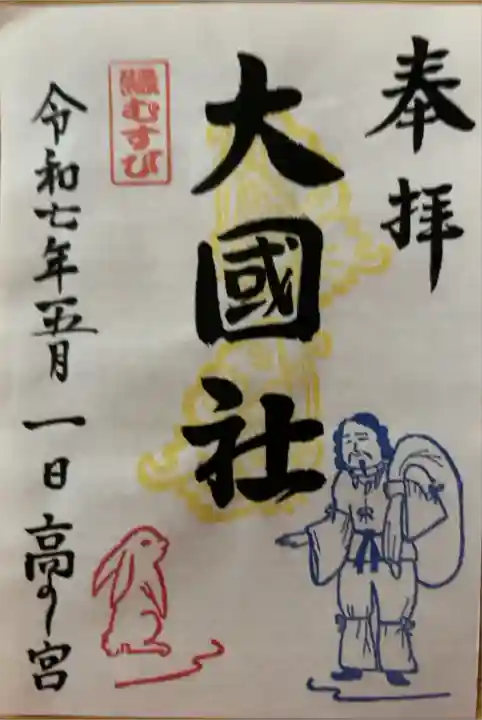 奉拝
大國社
縁むすび
令和七年五月一日高の宮